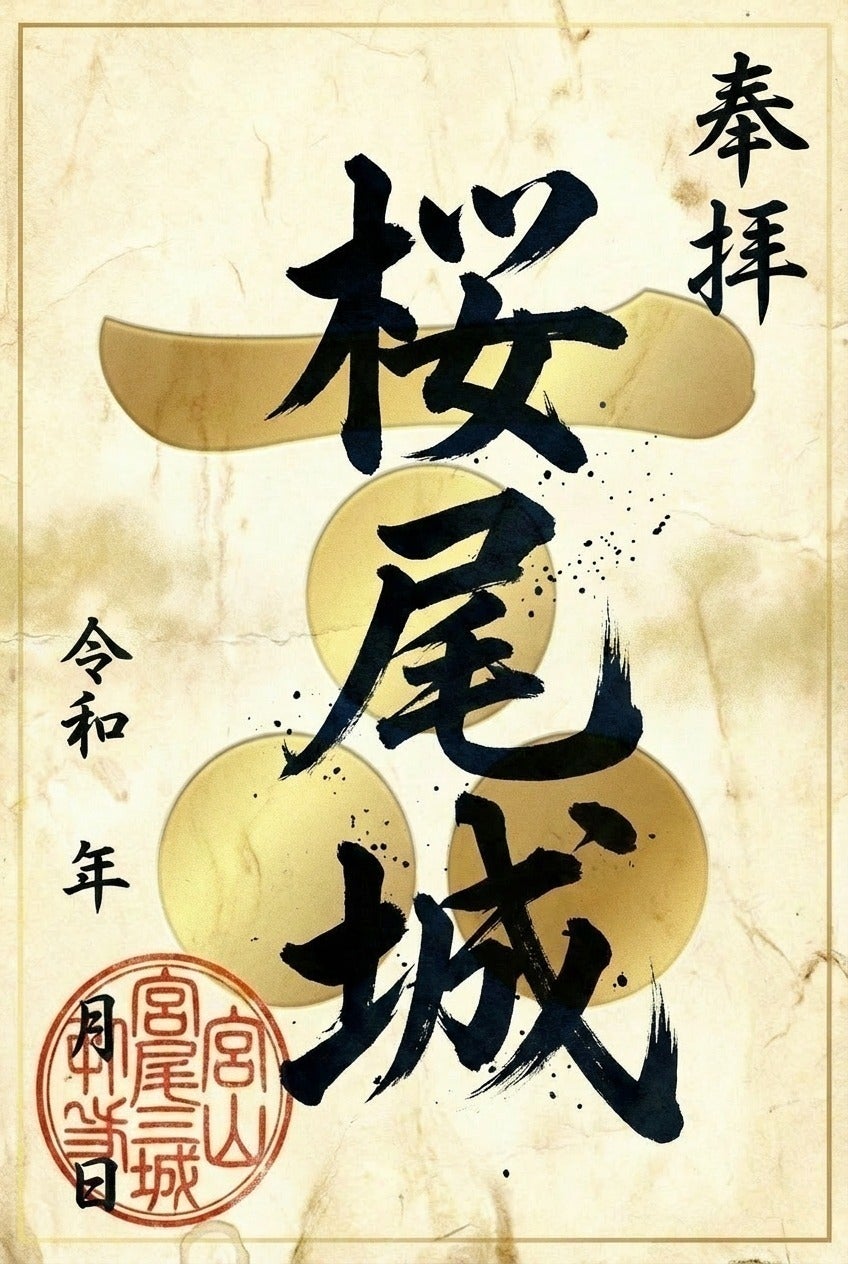 奉拝
桜尾城
令和 年 月 日
宮山
宮尾三城